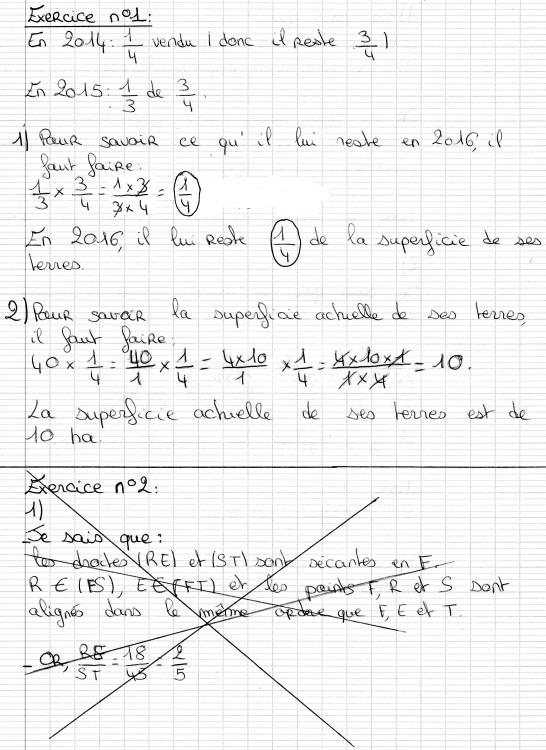 Exercice n°1:
En 2014: 1/4 vendu (donc il reste 3/4)
En 2015: 1/3 de 3/4.
1) Pour savoir ce qu'il lui reste en 2016, il
faut faire:
1/3 × 3/4 = 1×3/3×4 = 1/4
En 2016, il lui reste 1/4 de la superficie de ses
terres.
2) Pour savoir la superficie actuelle de ses terres,
il faut faire:
40 × 1/4 = 40/1 × 1/4 = 4×10/1 × 1/4 = 4×10×1/1×4 = 10.
La superficie actuelle de ses terres est de
10 ha.
Exercice n°2:
1)
-Je sais que:
les droites (RE) et (ST) sont sécantes en F.
R € (FS), E € (FT) et les points F, R et S sont
alignés dans le même ordre que F, E et T.
- OR, RE/ST = 18/45 = 2/5